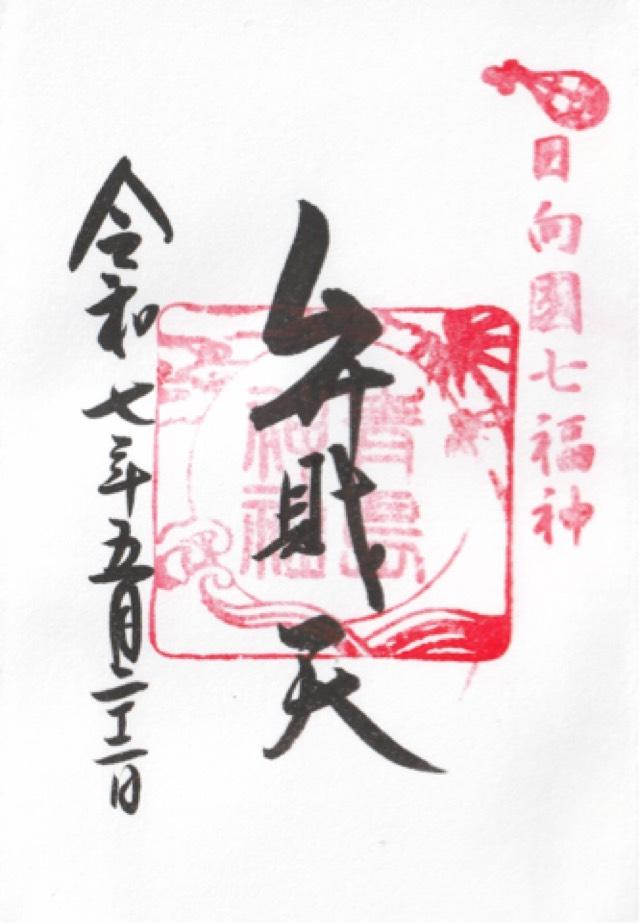 日向國七福神
弁財天
青島
令和七年五月二十二日